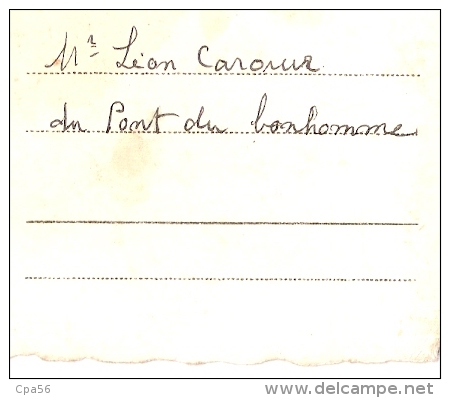 Mr Léon Carour
du Pont du bonhomme
Cpa56
delcampe.net